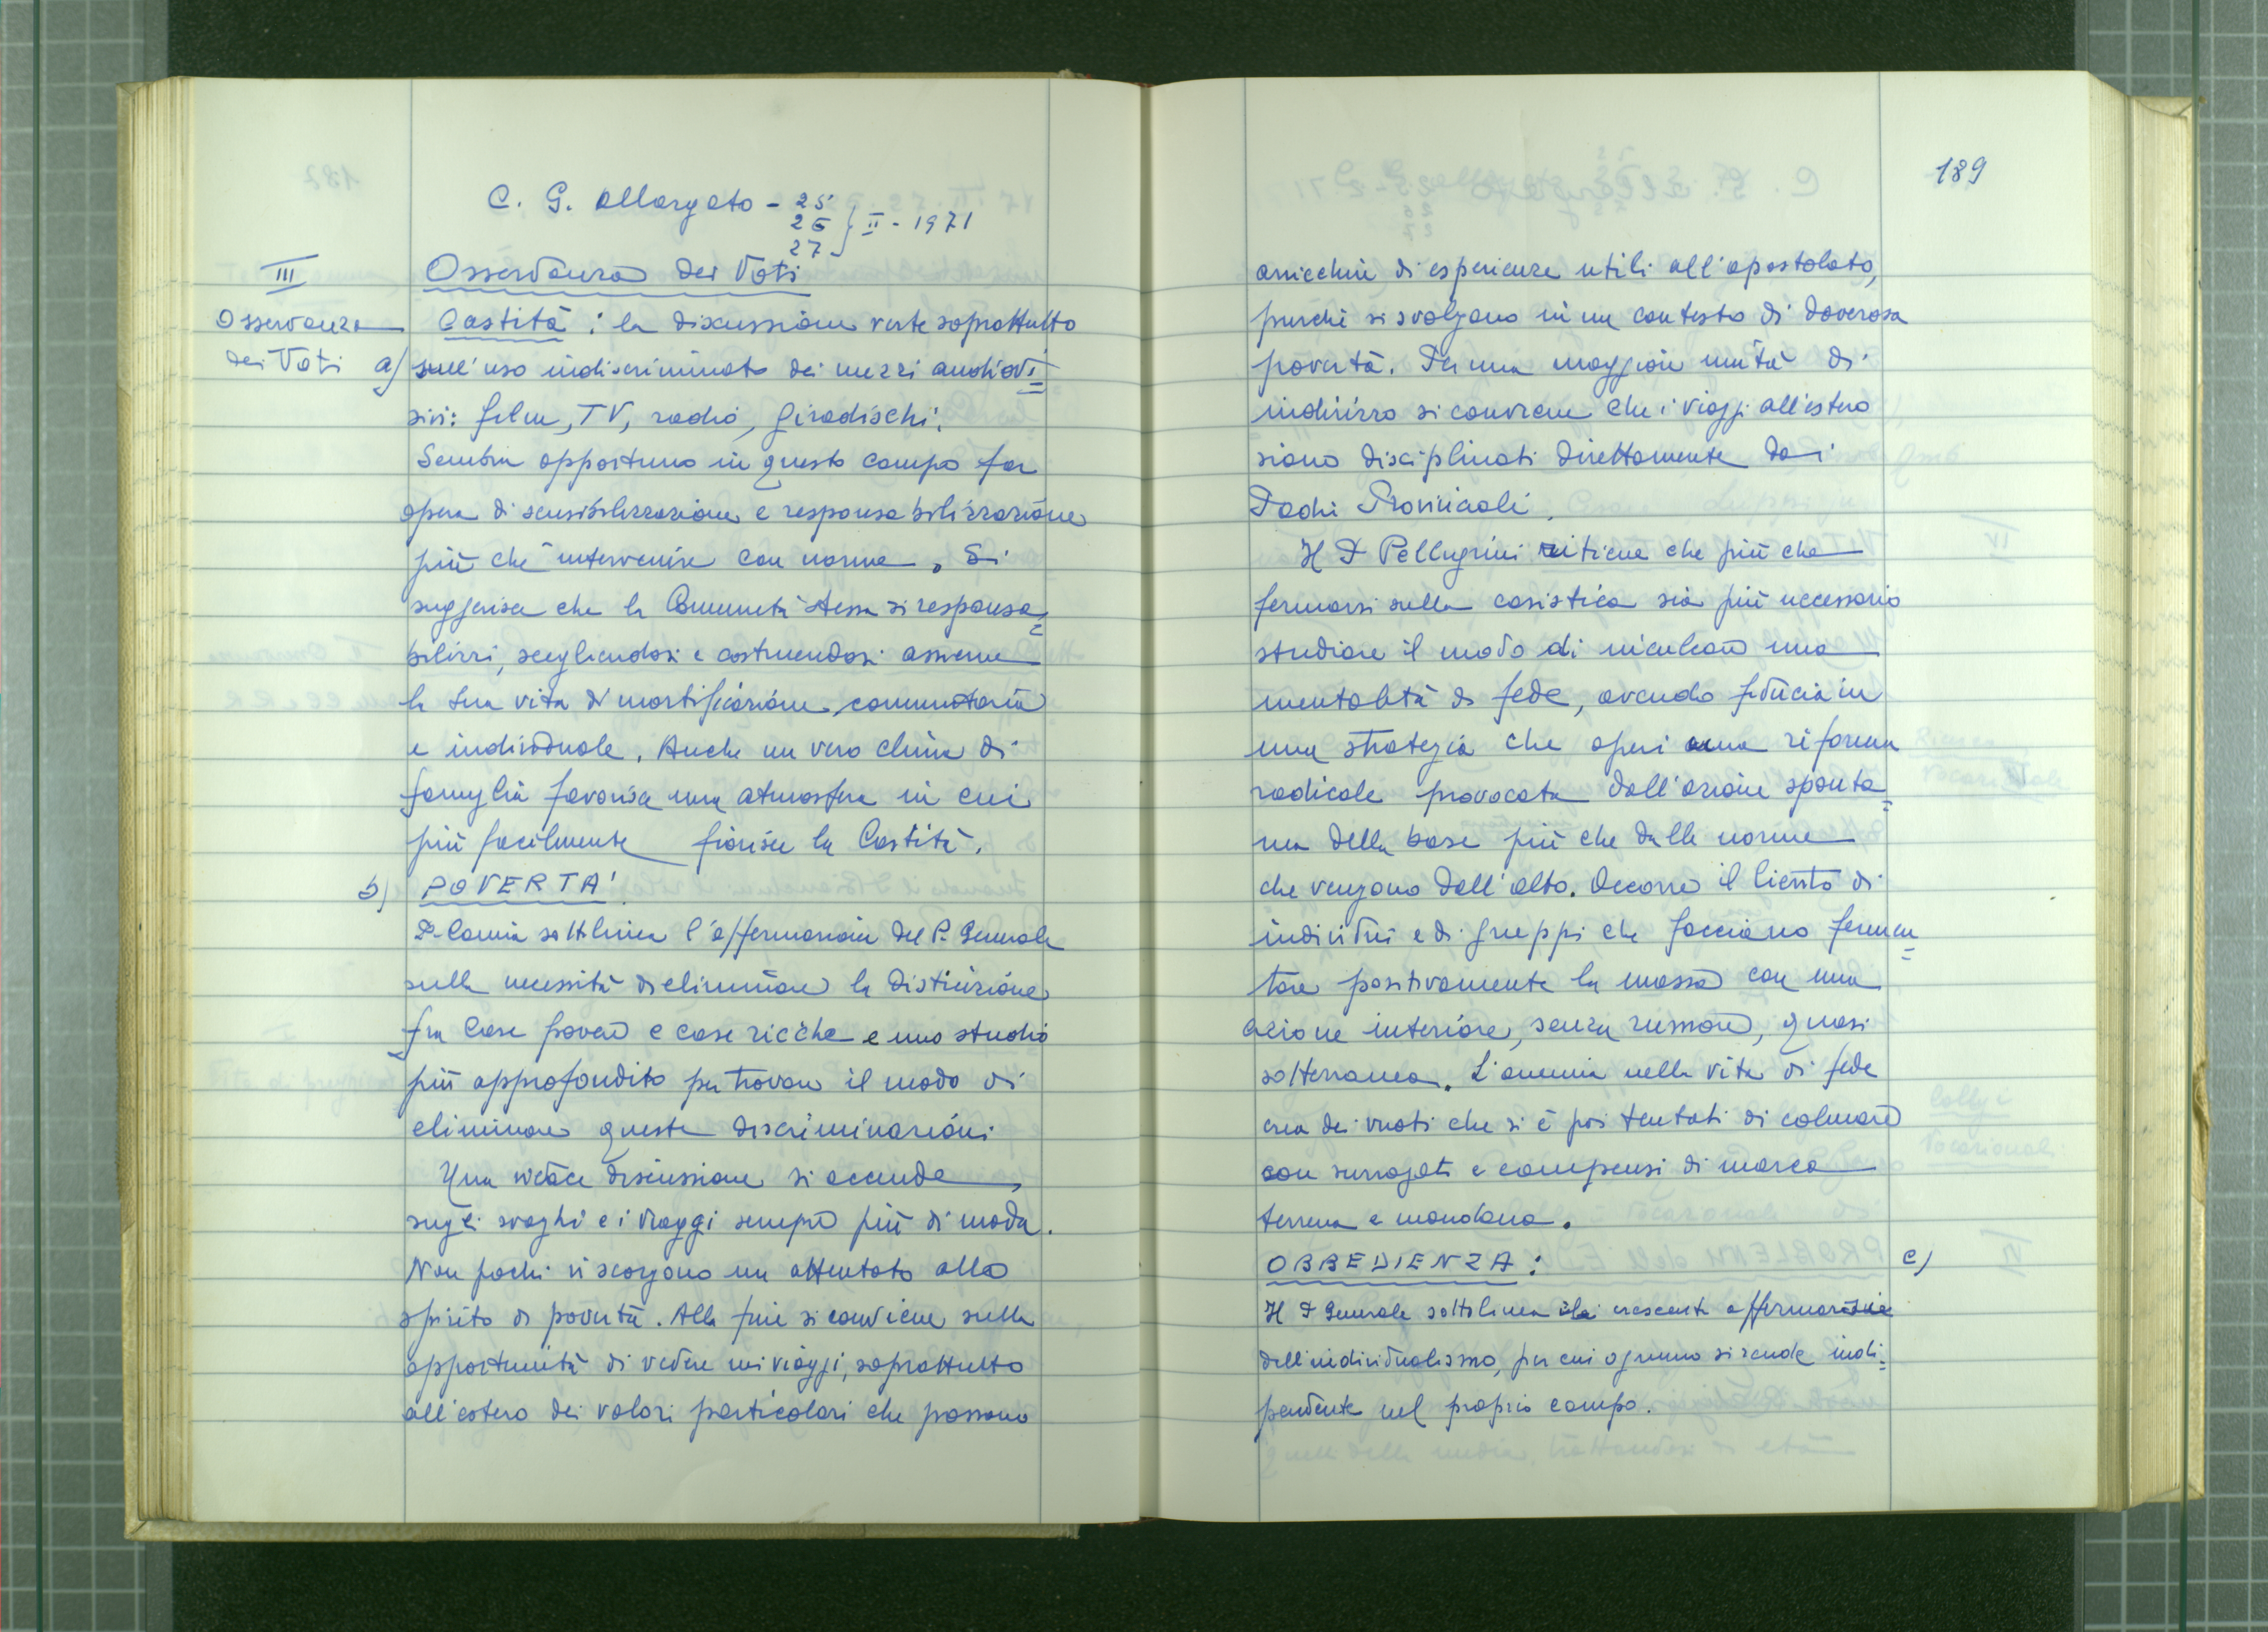 C. G. allargato - 25
26 } II - 1971
27
III
Osservanza dei Voti
Osservanza
dei Voti
Castità: la discussione verte soprattutto
a) sull'uso indiscriminato dei mezzi audiovi=
sivi: film, TV, radio, giradischi.
Sembra opportuno in questo campo far
opera di sensibilizzazione e responsabilizzazione
più che intervenire con norme. Si
suggerisce che la Comunità stessa si responsa=
bilizzi, scegliendosi e costruendosi assieme
la sua vita di mortificazione comunitaria
e individuale. Anche un vero clima di
famiglia favorisce una atmosfera in cui
più facilmente fiorisce la Castità.
b) POVERTA'
P. sottolinea l'affermazione del P. Generale
sulla necessità di eliminare la distinzione
fra Case povere e case ricche e uno studio
più approfondito per trovare il modo di
eliminare queste discriminazioni
Una vivace discussione si accende
sugli svaghi e i viaggi sempre più di moda.
Non pochi vi scorgono un attentato allo
spirito di povertà. Alla fine si conviene sulla
opportunità di vedere nei viaggi, soprattutto
all'estero dei valori particolari che possono
189
arricchire di esperienze utili all'apostolato,
purché si svolgano in un contesto di doverosa
povertà. Per una maggiore unità di
indirizzo si conviene che i viaggi all'estero
siano disciplinati direttamente dai
Padri Provinciali.
Il P Pellegrini ritiene che più che
fermarsi sulla casistica sia più necessario
studiare il modo di inculcare una
mentalità di fede, avendo fiducia in
una strategia che operi una riforma
radicale provocata dall'azione sponta=
nea della base più che dalle norme
che vengono dall'alto. Occorre il lievito di
individui e di gruppi che facciano fermen=
tare positivamente la massa con una
azione interiore, senza rumore, quasi
sotterranea. L'anemia nella vita di fede
crea dei vuoti che si è poi tentati di colmare
con surrogati e compensi di marca
terrena e mondana.
OBBEDIENZA: c)
Il P Generale sottolinea la crescente affermazione
dell'individualismo, per cui ognuno si rende indi=
pendente nel proprio campo.